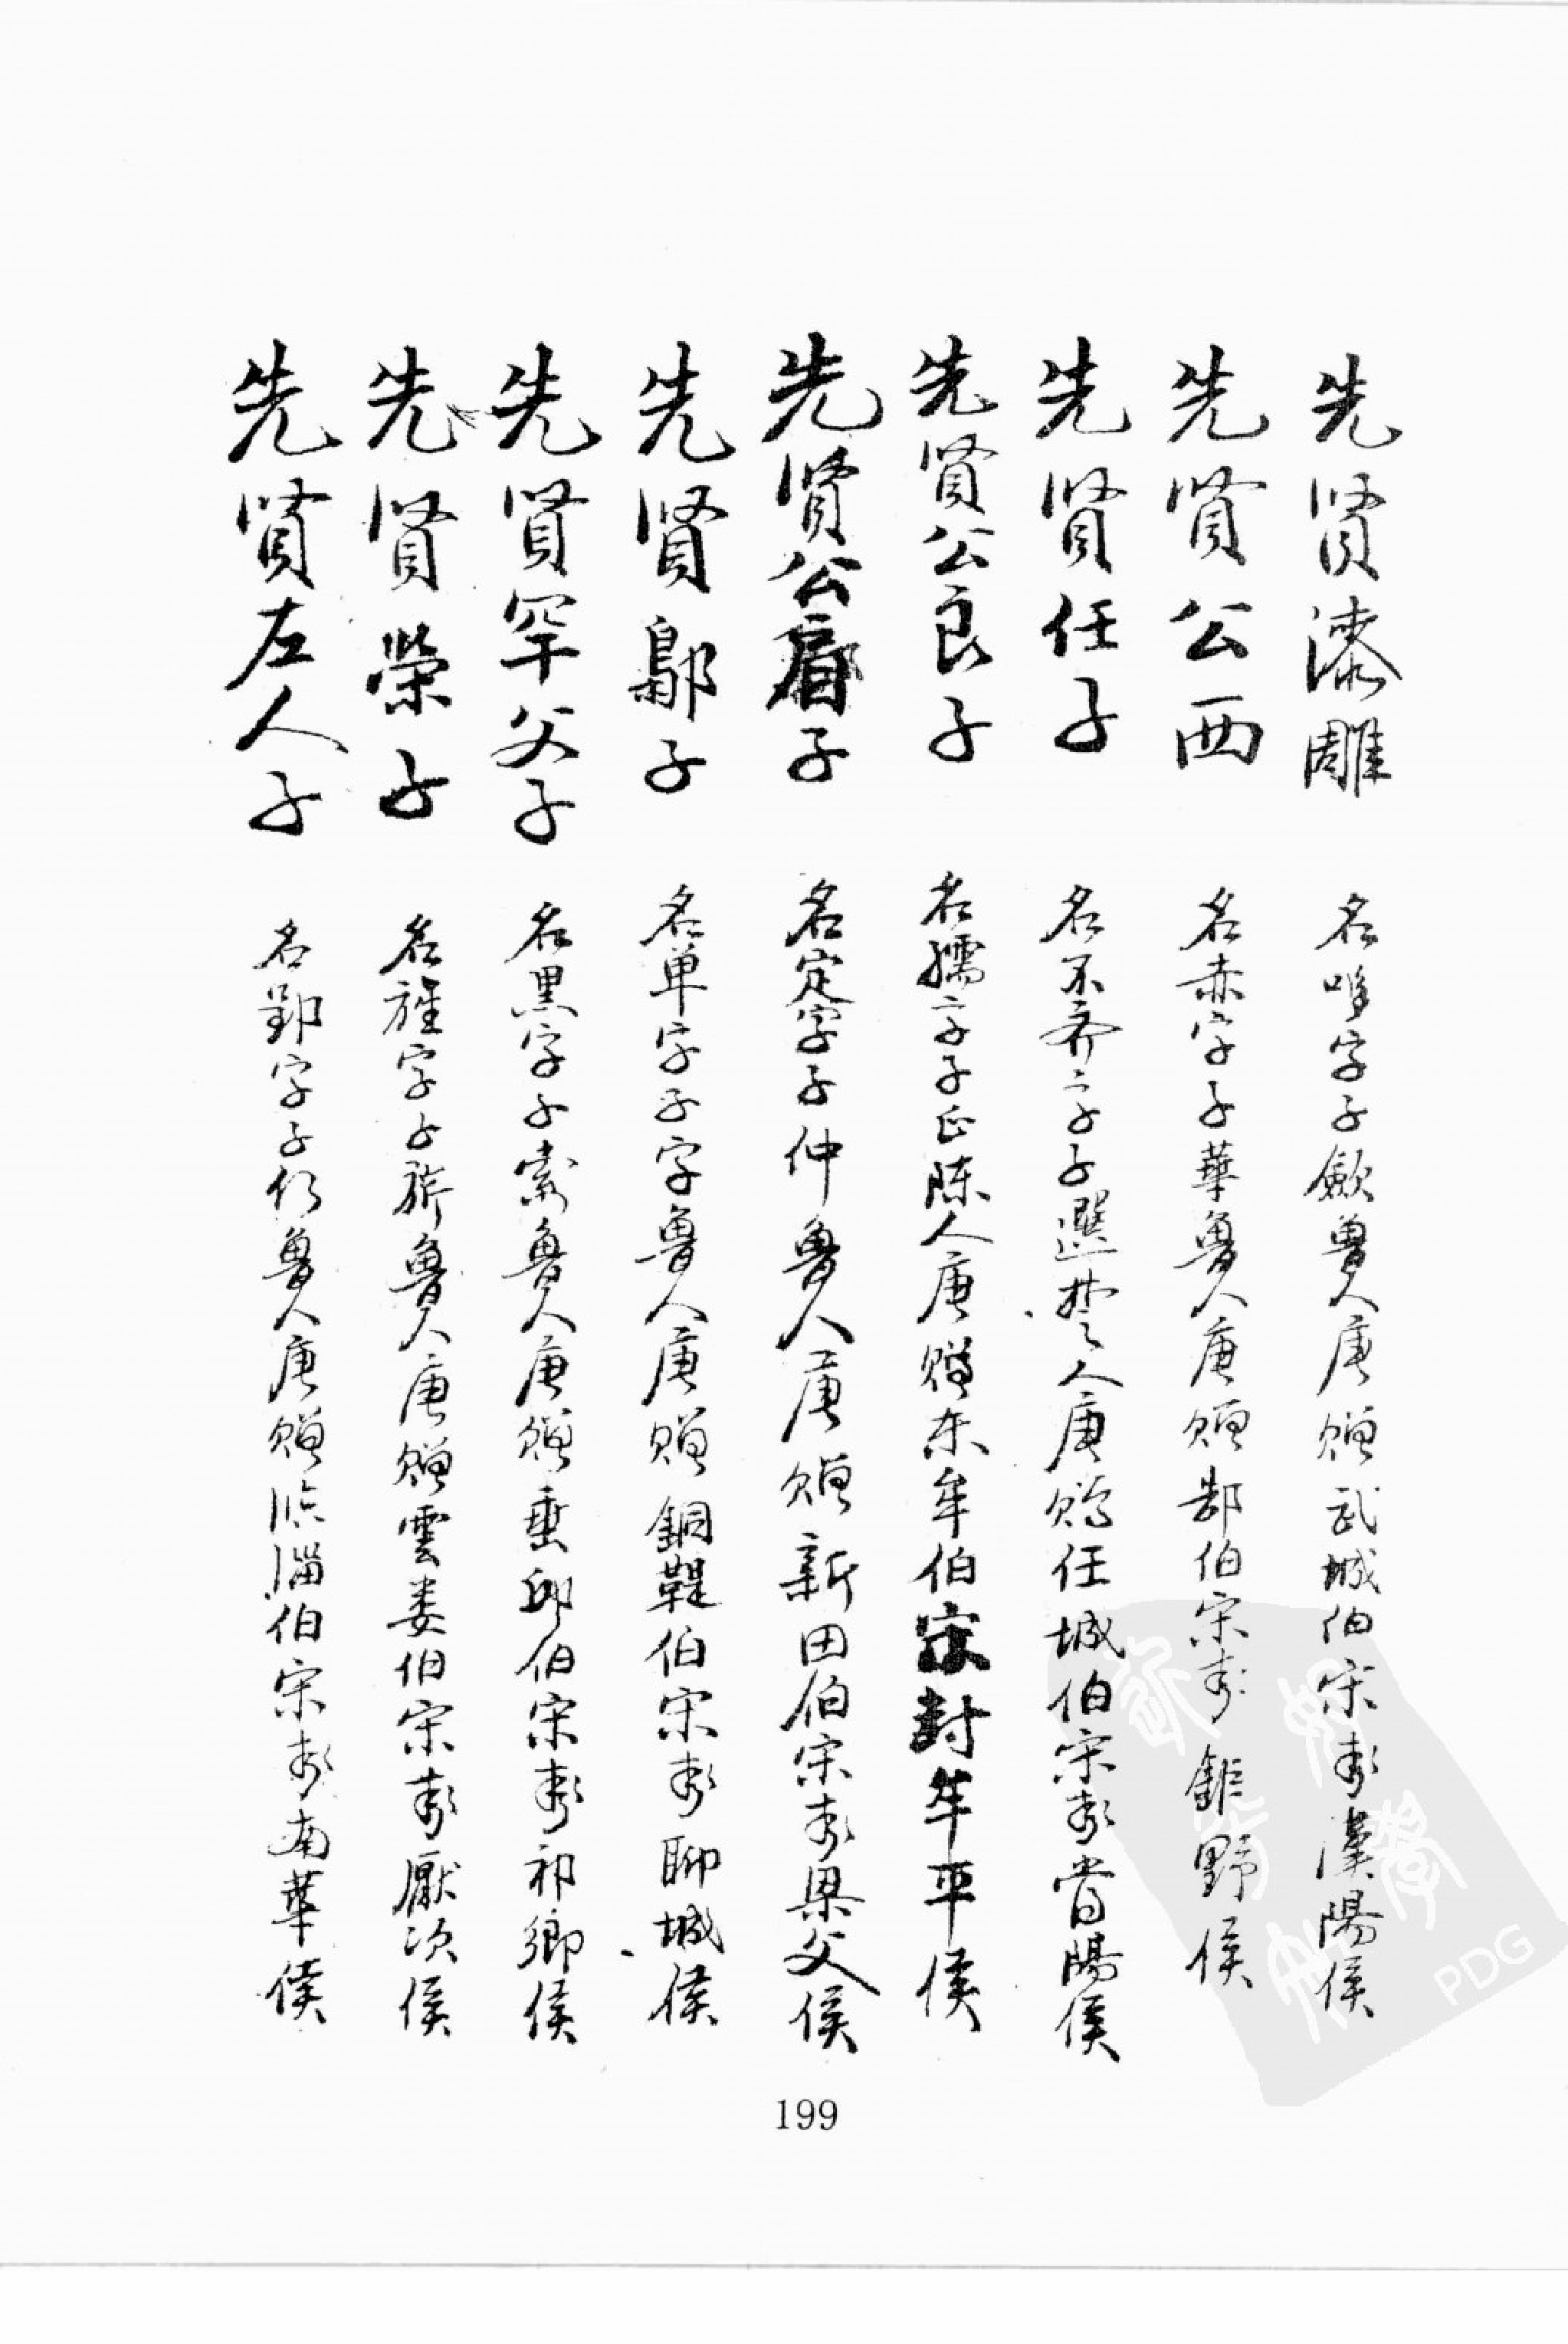 先贤漆雕 名哆字子歛魯人唐赠武城伯宋封濮陽侯
先贤公西 名赤字子華魯人唐赠郜伯宋封鉅野侯
先贤任子 名不齐字子選楚人唐赠任城伯宋封當陽侯
先贤公良子 名孺字子正陈人唐赠东牟伯宋封牟平侯
先贤公肩子 名定字子仲魯人唐赠新田伯宋封梁父侯
先贤鄡子 名单字子家魯人唐赠銅鞮伯宋封聊城侯
先贤罕父子 名黑字子索魯人唐赠乘邱伯宋封祁鄉侯
先贤榮子 名旂字子祺魯人唐赠雲娄伯宋封厭次侯
先贤左人子 名郢字子行魯人唐赠临淄伯宋封南華侯
199
PDG